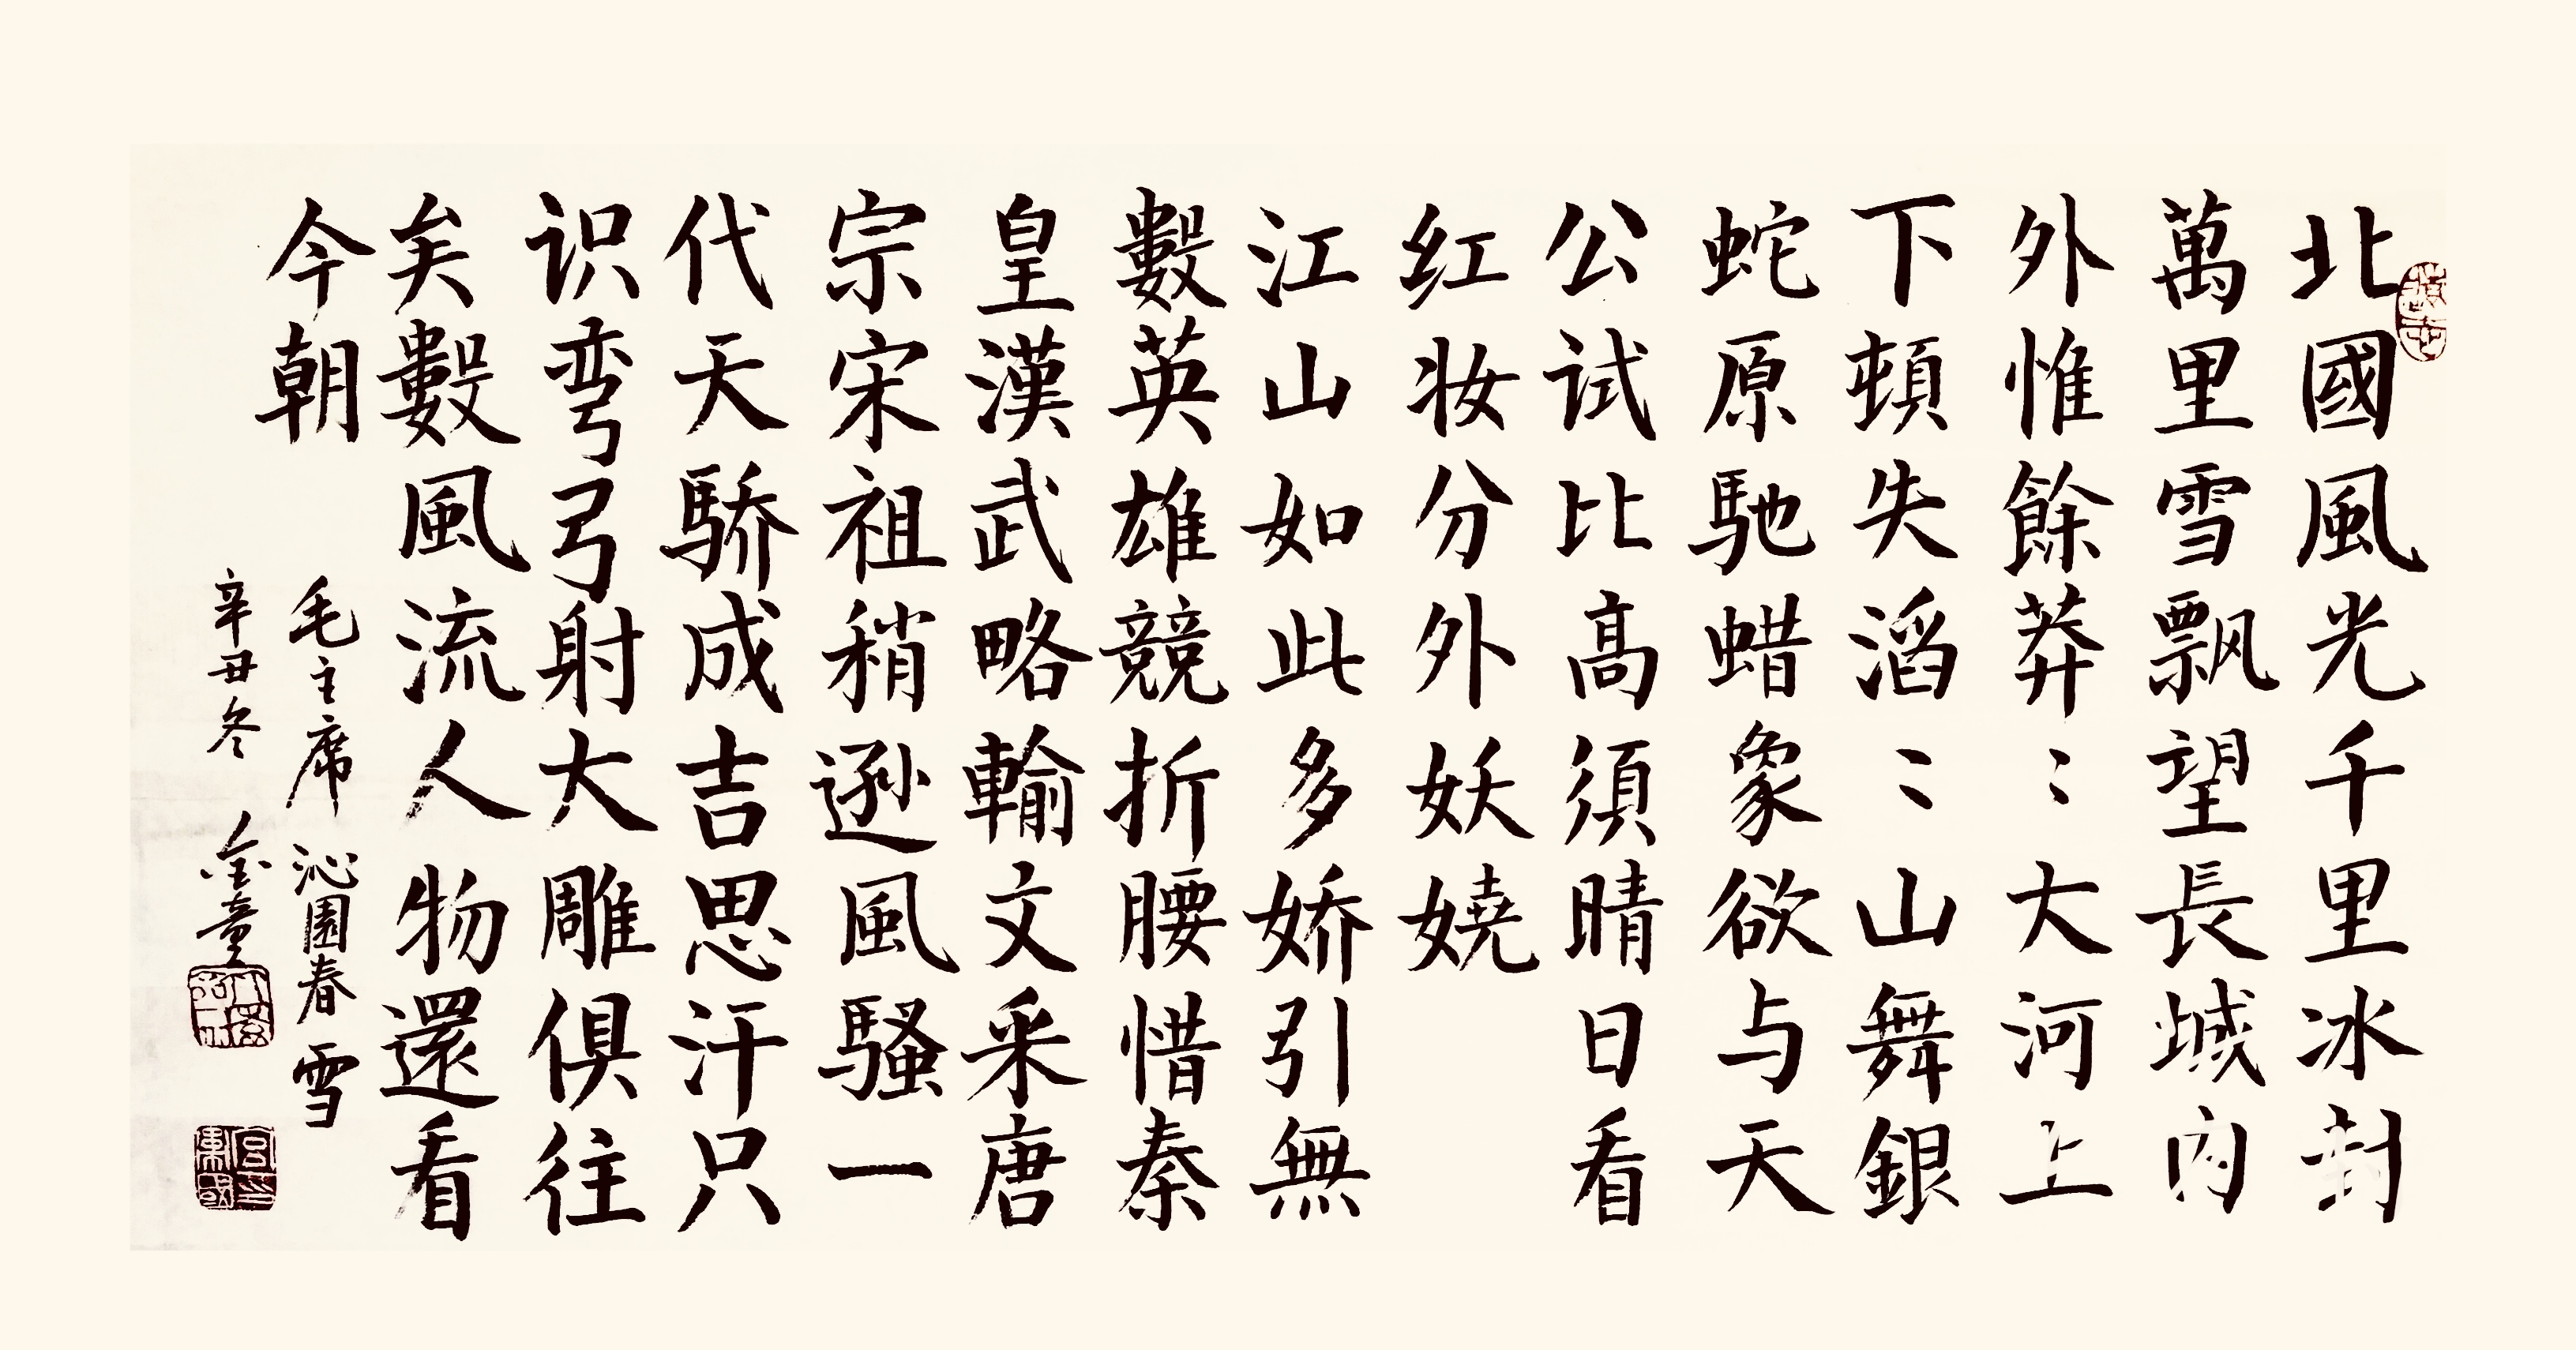 北國風光千里冰封
萬里雪飘望長城内
外惟餘莽〻大河上
下頓失滔〻山舞銀
蛇原馳蜡象欲与天
公试比高須晴日看
红妆分外妖娆
江山如此多娇引無
數英雄競折腰惜秦
皇漢武略輸文采唐
宗宋祖稍逊風騷一
代天骄成吉思汗只
识弯弓射大雕俱往
矣數風流人物還看
今朝
毛主席 沁園春 雪
辛丑冬 金童